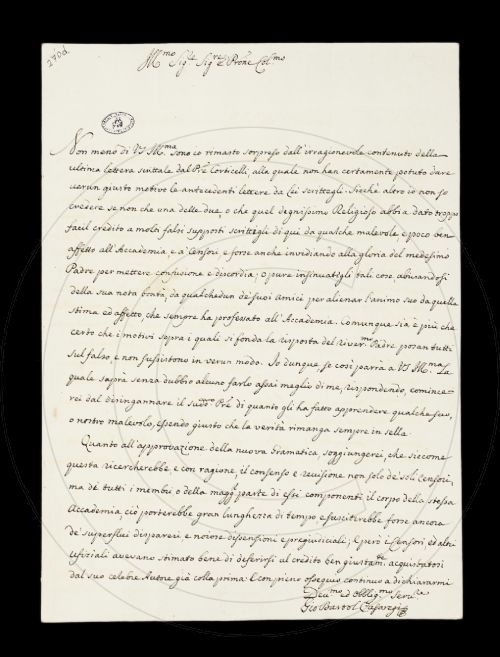 270d.
Ill.mo Sig.re Sig.re e Prone Col.mo
Non meno di VS Ill.ma sono io rimasto sorpreso dall'irragionevole contenuto della
ultima lettera scrittale dal P.re Corticelli, alla quale non han certamente potuto dare
verun giusto motivo le antecedenti lettere da Lei scrittegli. Sicché altro io non so
credere se non che una delle due, o che quel degnissimo Religioso abbia dato troppo
facil credito a molti falsi supposti scrittegli di qui da qualche malevole e poco ben
affetto all'Accademia, e a' Censori, e forse anche invidiando alla gloria del medesimo
Padre per mettere confusione e discordia; o pure insinuatigli tali cose, abusandosi
della sua nota bontà, da qualcheduno de' suoi Amici per alienar l'animo suo da quella
stima ed affetto, che sempre ha professato all'Accademia. Comunque sia è più che
certo che i motivi sopra i quali si fonda la risposta del River.mo Padre, posan tutti
sul falso, e non sussistono in verun modo. Io dunque se così parrà a VS Ill.ma la
quale saprà senza dubbio alcuno farlo assai meglio di me, rispondendo, comince-
rei dal disingannare il sud.o P.re di quanto gli ha fatto apprendere qualche suo,
o nostro malevolo, essendo giusto che la verità rimanga sempre in sella.
Quanto all'approvazione della nuova Gramatica, soggiungerei, che siccome
questa ricercherebbe, e con ragione, il consenso e revisione non solo de' soli Censori,
ma de' tutti i membri o della magg.r parte di essi componenti il corpo della stessa
Accademia, ciò porterebbe gran lunghezza di tempo e susciterebbe forse ancora
de' superflui dispareri, e nuove dissensioni e pregiudiciali; E però i Censori ed altri
ufiziali avevano stimato bene di deferirsi al credito ben giustam.te acquistatosi
dal suo celebre Autore già colla prima: E con pieno ossequio continuo a dichiararmi
Dev.mo ed Obblig.mo Serv.re
Gio Bartol Casaregi